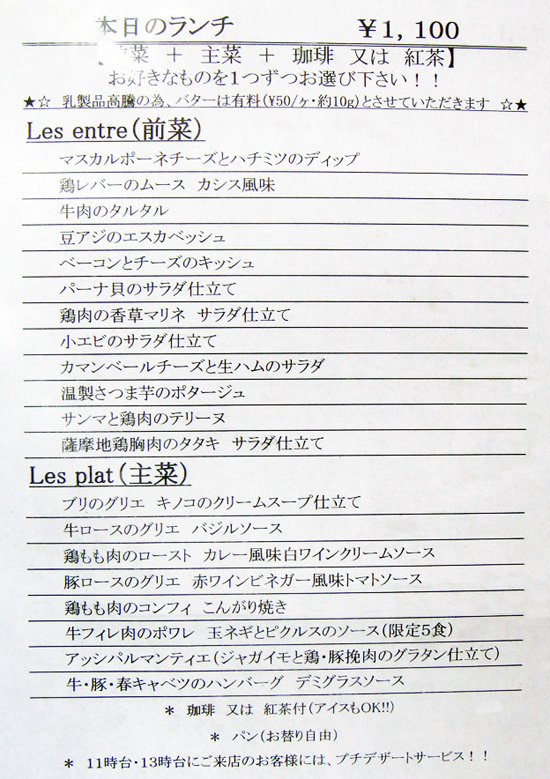 本日のランチ ￥1,100
【前菜 ＋ 主菜 ＋ 珈琲 又は 紅茶】
お好きなものを1つずつお選び下さい！！
★☆ 乳製品高騰の為、バターは有料(¥50/ヶ・約10g)とさせていただきます ☆★
Les entre(前菜)
マスカルポーネチーズとハチミツのディップ
鶏レバーのムース カシス風味
牛肉のタルタル
豆アジのエスカベッシュ
ベーコンとチーズのキッシュ
パーナ貝のサラダ仕立て
鶏肉の香草マリネ サラダ仕立て
小エビのサラダ仕立て
カマンベールチーズと生ハムのサラダ
温製さつま芋のポタージュ
サンマと鶏肉のテリーヌ
薩摩地鶏胸肉のタタキ サラダ仕立て
Les plat(主菜)
ブリのグリエ キノコのクリームスープ仕立て
牛ロースのグリエ バジルソース
鶏もも肉のロースト カレー風味白ワインクリームソース
豚ロースのグリエ 赤ワインビネガー風味トマトソース
鶏もも肉のコンフィ こんがり焼き
牛フィレ肉のポワレ 玉ネギとピクルスのソース(限定5食)
アッシパルマンティエ(ジャガイモと鶏・豚挽肉のグラタン仕立て)
牛・豚・春キャベツのハンバーグ デミグラスソース
＊ 珈琲 又は 紅茶付(アイスもOK!!)
＊ パン(お替り自由)
＊ 11時台・13時台にご来店のお客様には、プチデザートサービス！！